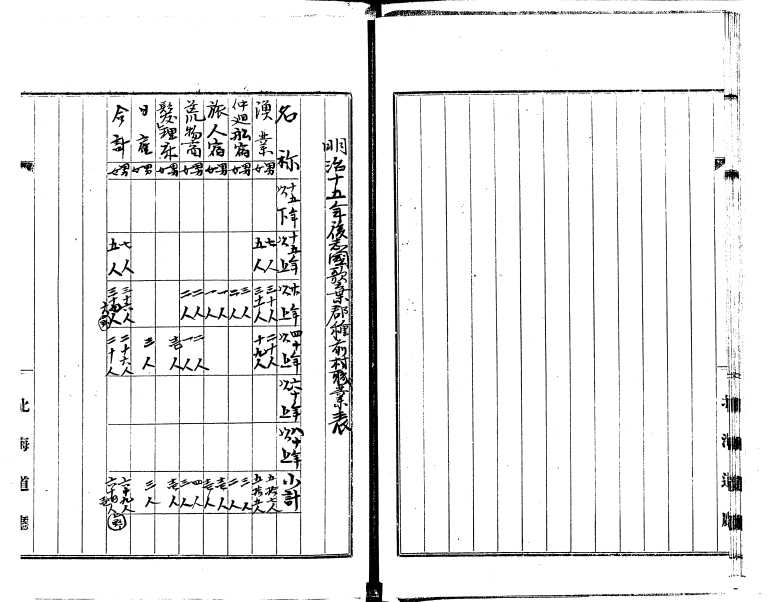 明治十五年後志國歌棄郡種前村職業表
名称 十五年以下 十五年以上 廿年以上 四十年以上 六十年以上 八十年以上 小計
漁業 男 七人 三十人 二十人 五拾七人
女 五人 三十一人 十九人 五拾五人
仲廻舩宿 男 三人 三人
女 二人 二人
旅人宿 男 一人 壱人
女 一人 壱人
荒物商 男 二人 二人 四人
女 二人 一人 三人
髪理床 男 壱人 壱人
女
日雇 男 三人 三人
女
合計 男 七人 三十六人 二十六人 六十九人
女 五人 二十人
北海道廳
北海道廳